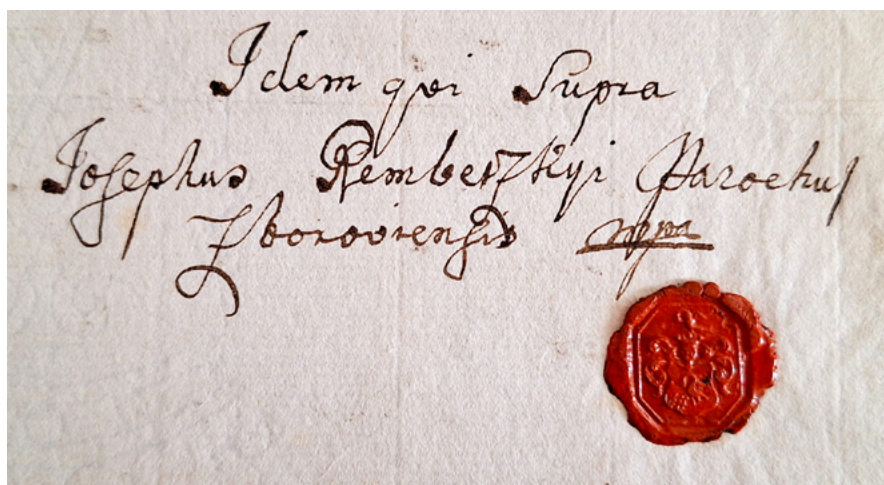 Idem qui Supra
Josephus Remberzkyi Parochus
Zboroviensis mpa